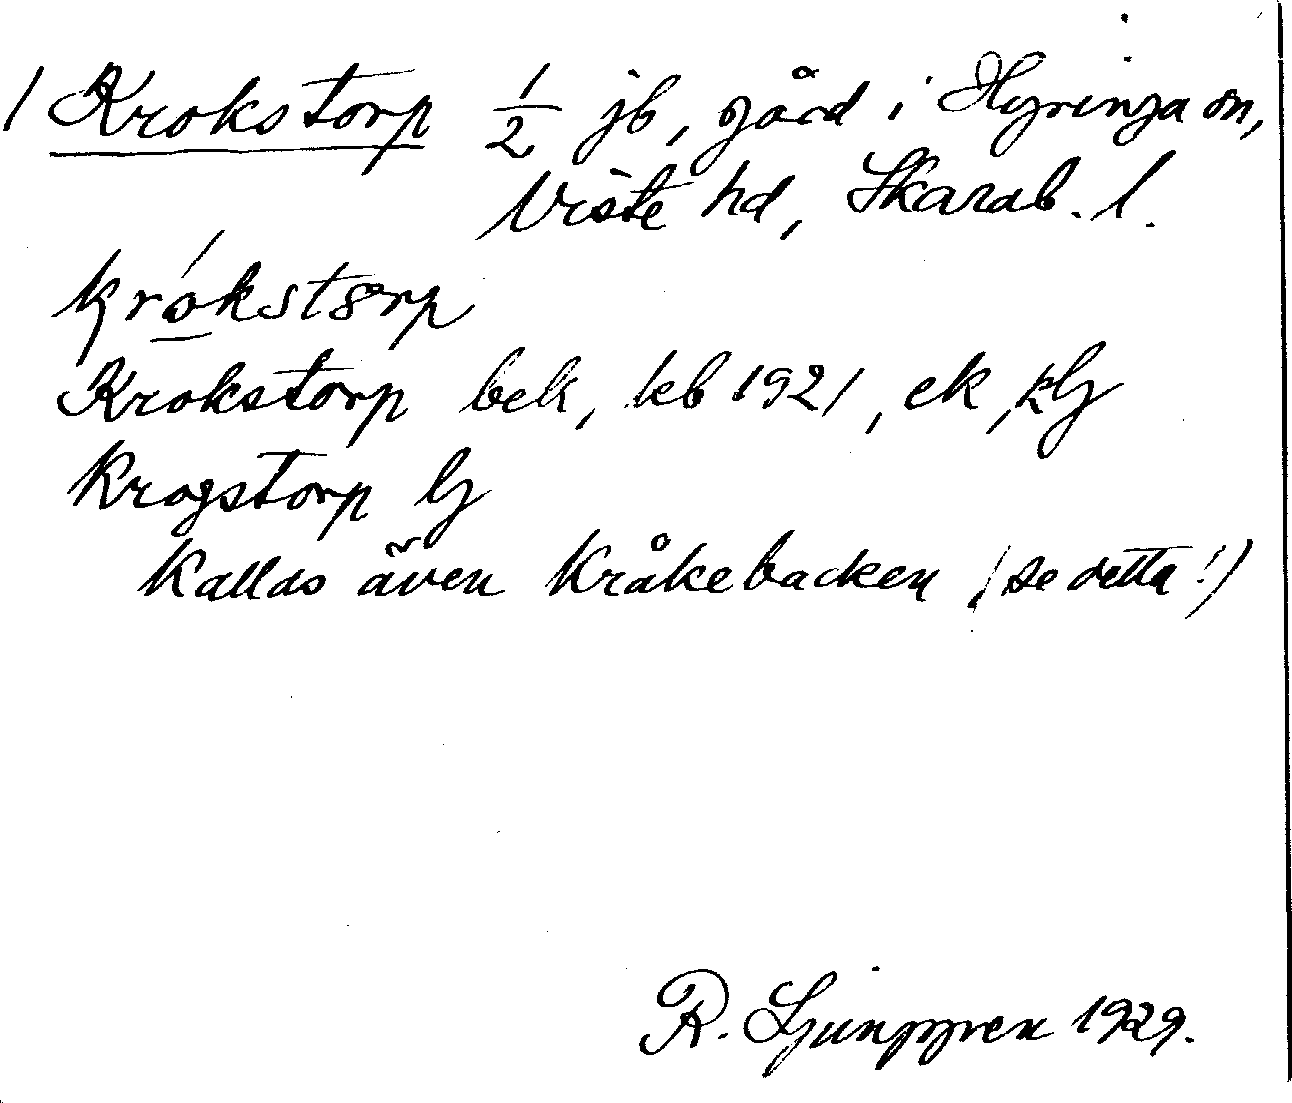 1 Krokstorp 1/2 jb, gård i Hyringa sn,
Viste hd, Skarab. l.
krókstørp
Krokstorp bek, kb 1921, ek, klj
Krogstorp lj
Kallas även Kråkebacken (se detta!)
R. Ljunggren 1929.